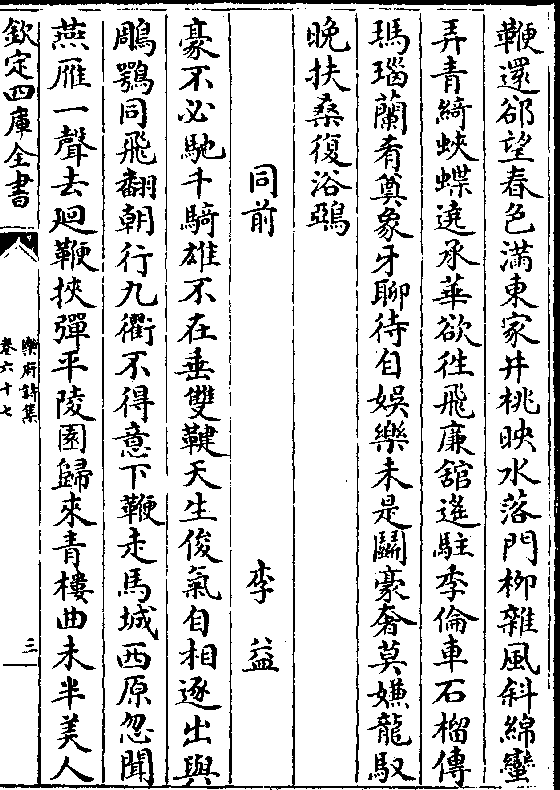 鞭還郤望春色滿東家井桃映水落門柳雜風斜綿蠻
弄青綺蛺蝶遶承華欲徃飛廉舘遙駐季倫車石榴傳
瑪瑙蘭肴奠象牙聊待自娛樂未是鬭豪奢莫嫌龍馭
晚扶桑復浴鵶
同前 李益
豪不必馳千騎雄不在垂雙鞬天生俊氣自相逐出與
鵰鶚同飛翻朝行九衢不得意下鞭走馬城西原忽聞
燕雁一聲去廻鞭挾彈平陵園歸來青樓曲未半美人
欽定四庫全書
樂府詩集
卷六十七
三